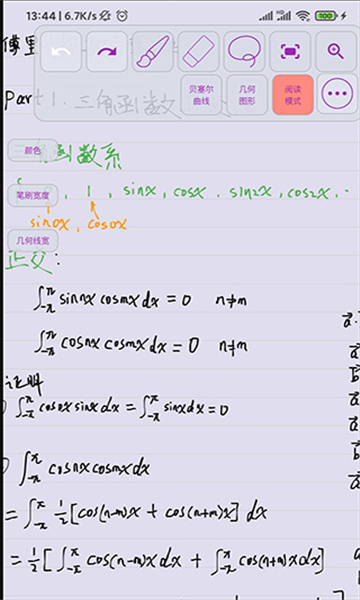 13:44 | 6.7K/s
HD
100
傅里
贝塞尔曲线
几何图形
阅读模式
Part 1. 三角函数
颜色
函数系
笔刷宽度
, 1, sinx, cosx, sin2x, cos2x, ·
sin0x, cos0x
几何线宽
正交:
∫_{-π}^{π} sinnx cosmx dx = 0 n≠m
∫_{-π}^{π} cosnx cosmx dx = 0 n≠m
证明
) ∫_{-π}^{π} cos0x sinx dx = ∫_{-π}^{π} sinx dx = 0
) ∫_{-π}^{π} cosnx cosmx dx
= ∫_{-π}^{π} ½[cos(n-m)x + cos(n+m)x] dx
= ½[∫_{-π}^{π} cos(n-m)x dx + ∫_{-π}^{π} cos(n+m)x dx]